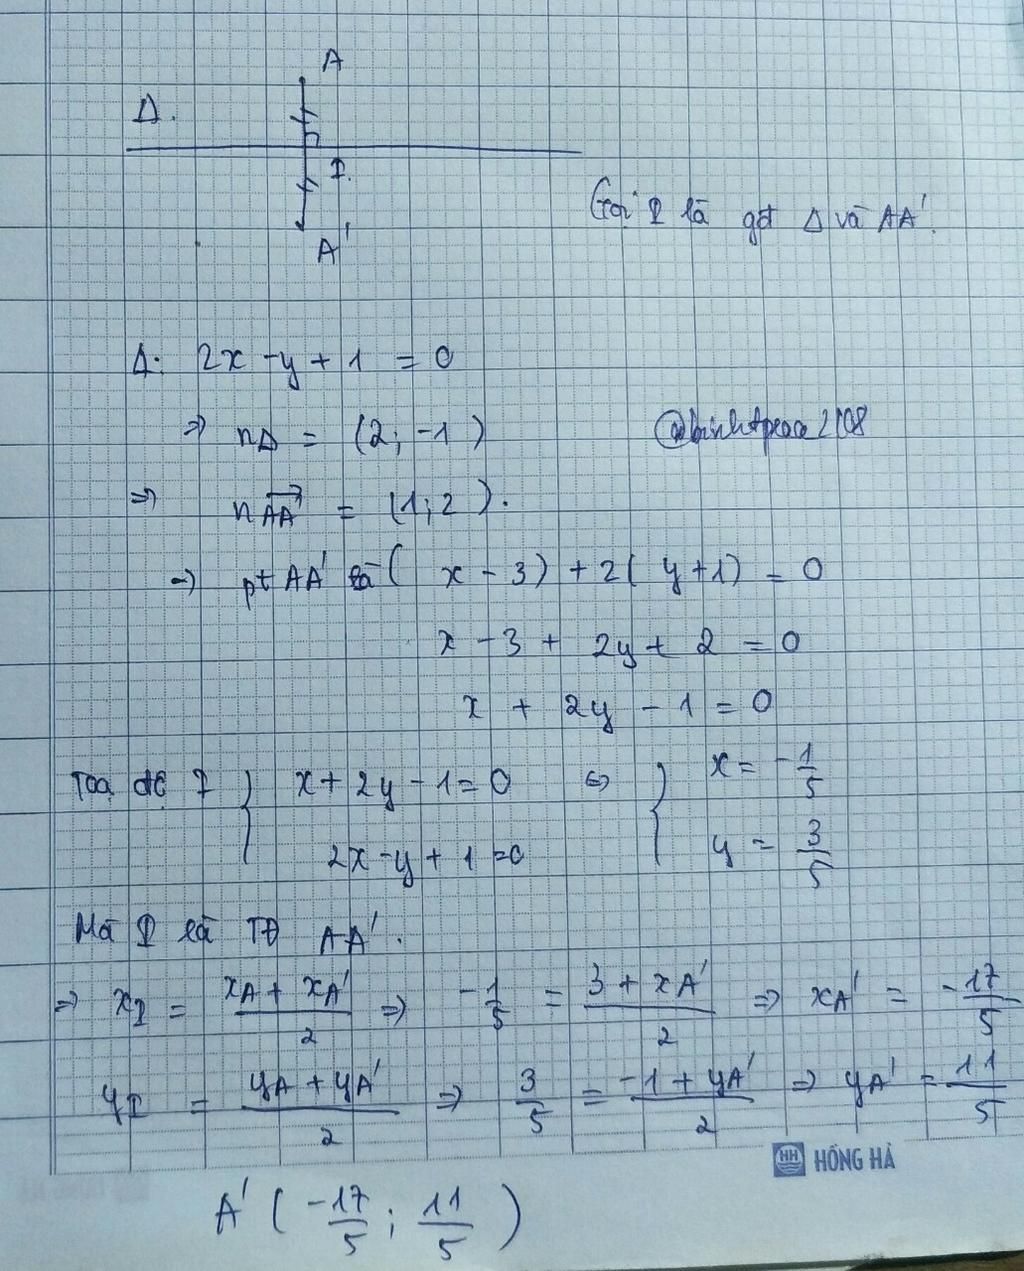 A
Δ.
I.
A'
Gọi I là gđ Δ và AA'.
Δ: 2x - y + 1 = 0
⇒ nΔ = (2; -1)
⇒ n\overrightarrow{AA'} = (1; 2).
→ pt AA' là (x - 3) + 2(y + 1) = 0
x - 3 + 2y + 2 = 0
x + 2y - 1 = 0
Toạ độ I { x + 2y - 1 = 0 ⇔ { x = -1/5
2x - y + 1 = 0 y = 3/5
Mà I là TĐ AA'.
⇒ xI = (xA + xA')/2 ⇒ -1/5 = (3 + xA')/2 ⇒ xA' = -17/5
yI = (yA + yA')/2 ⇒ 3/5 = (-1 + yA')/2 ⇒ yA' = 11/5
HH HỒNG HÀ
A' (-17/5; 11/5)